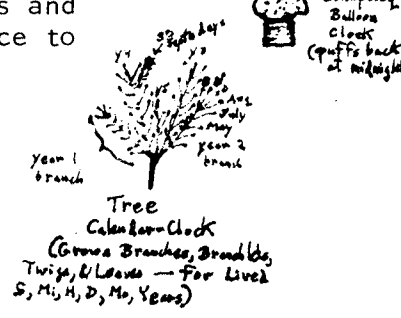 s and
ce to
Balloon
Clock
(puffs back
at midnight
Aug
July
May
year 2
branch
year 1
branch
Tree
Calendar-Clock
(Grows Branches, Branchlets,
Twigs, & Leaves — For Lived
S, Mi, H, D, Mo, Years)